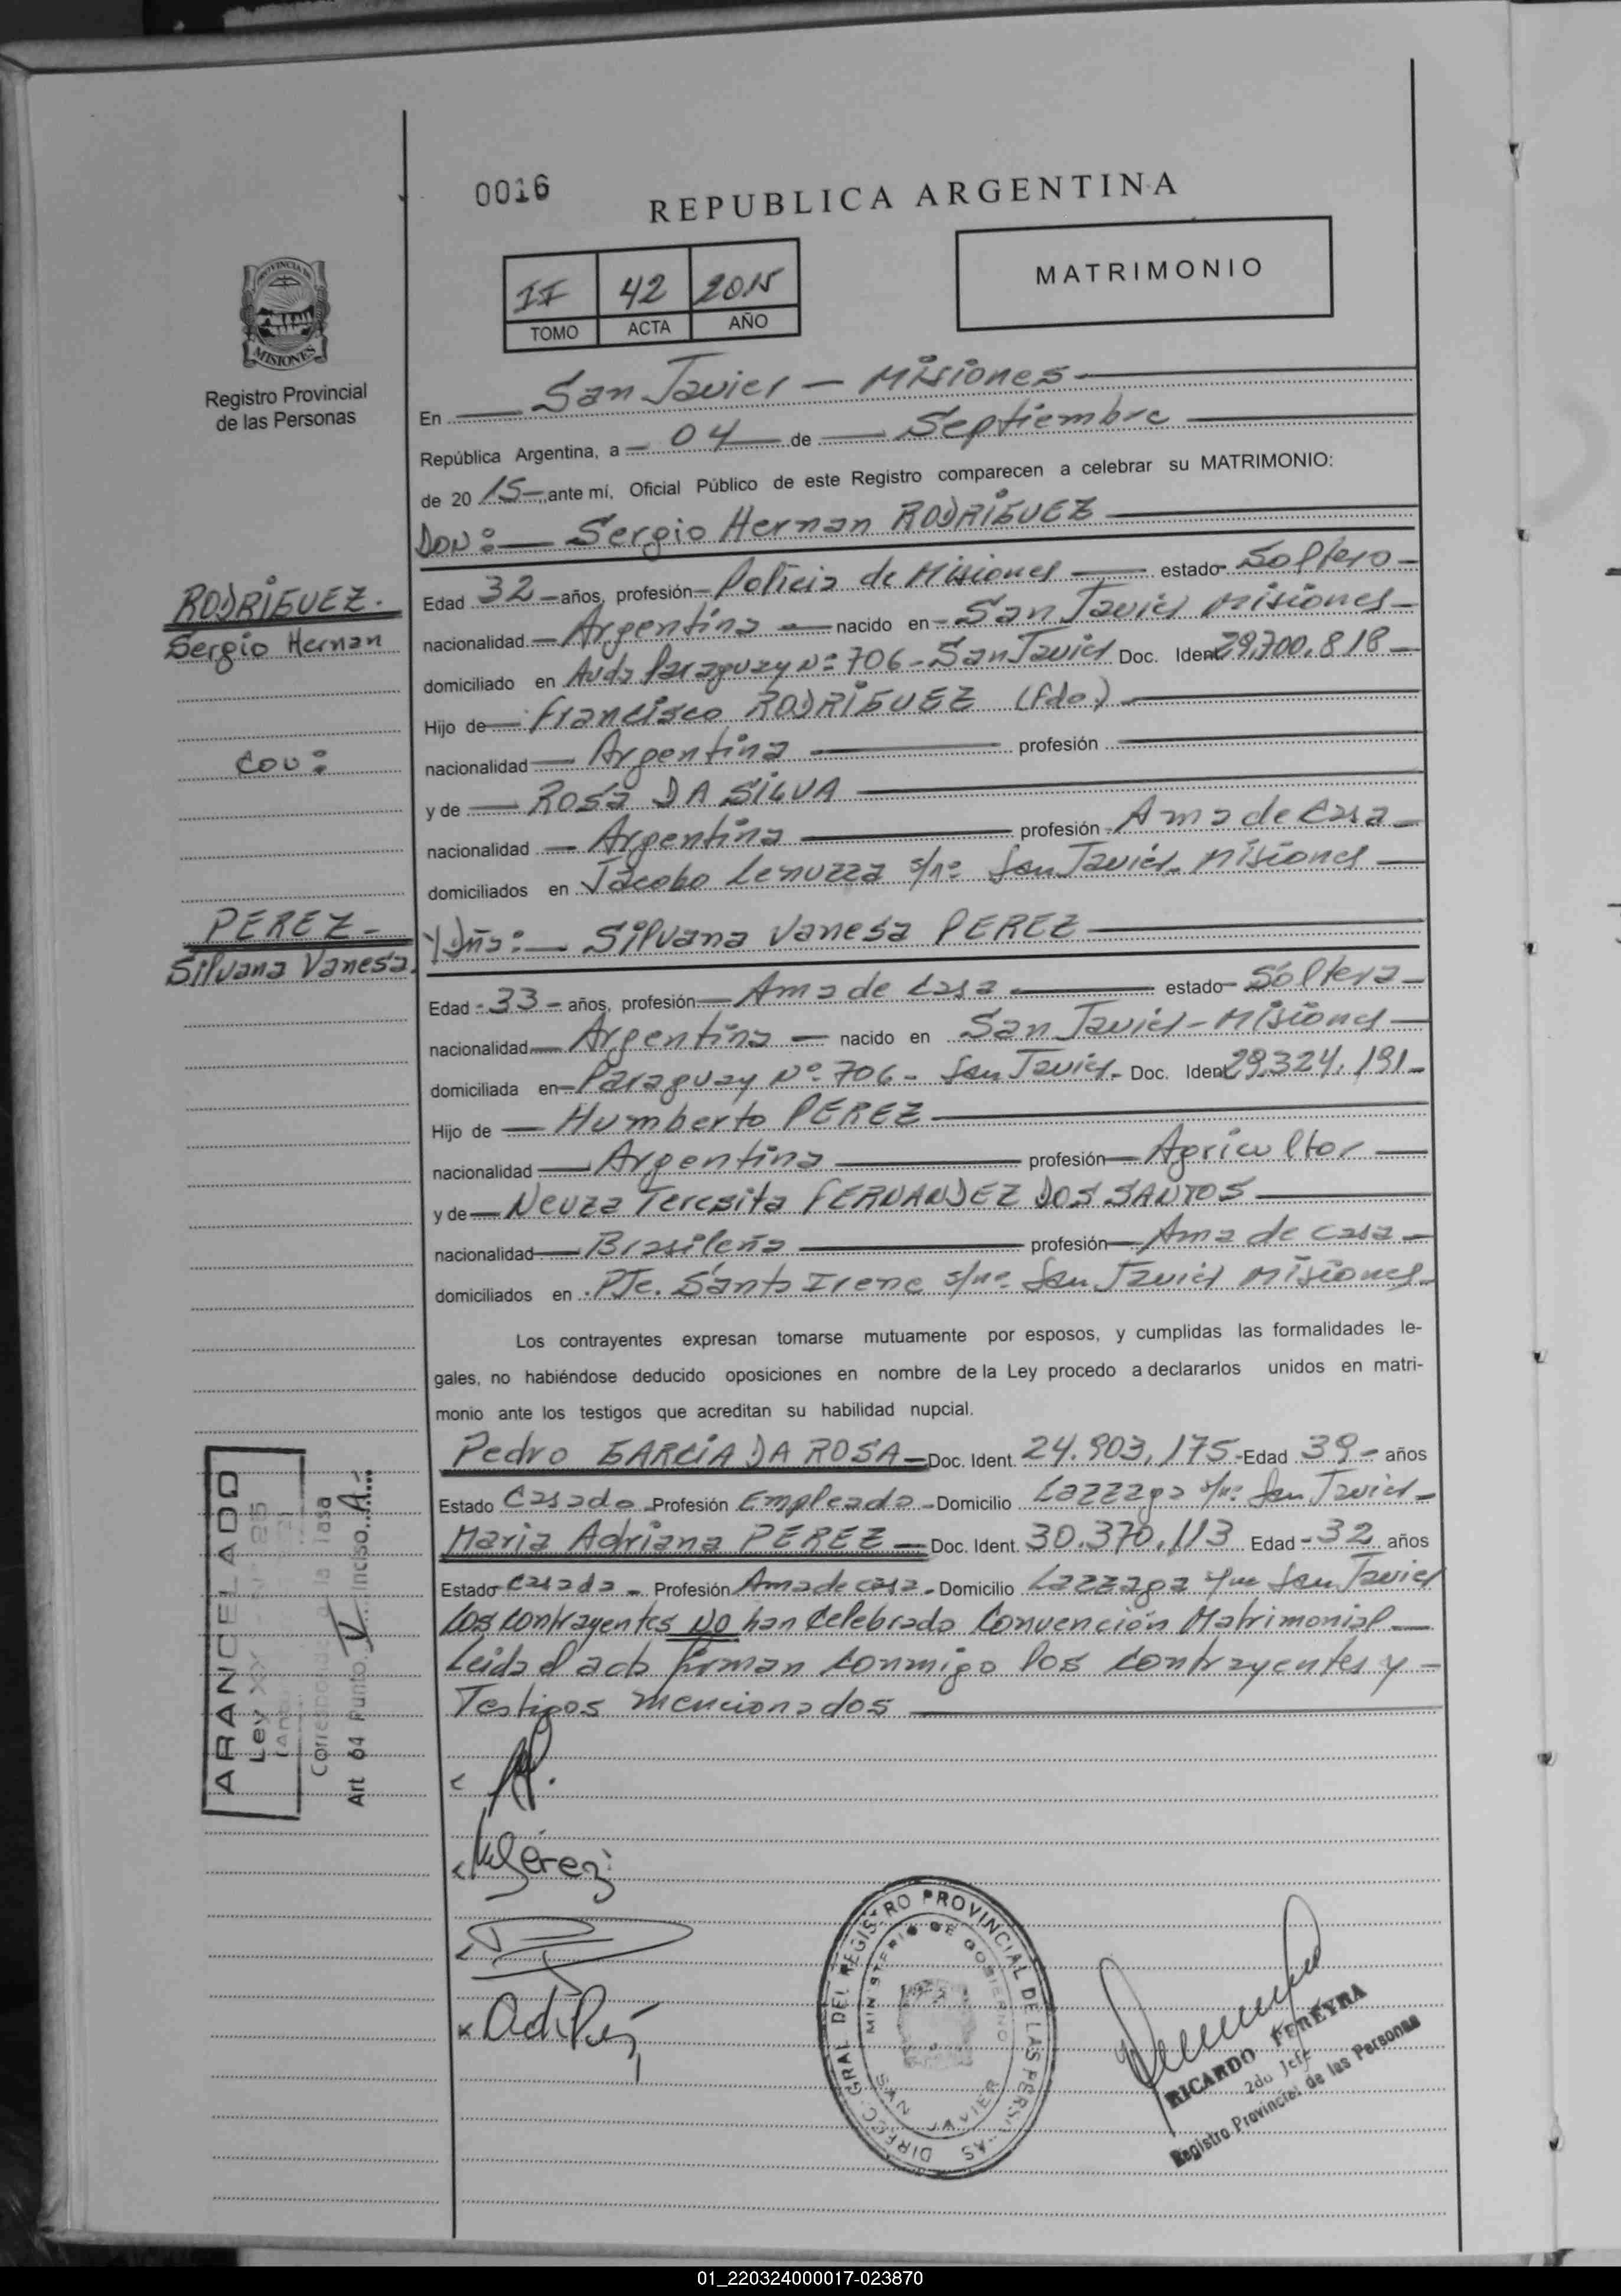 0016
REPUBLICA ARGENTINA
II 42 2015
TOMO ACTA AÑO
MATRIMONIO
PROVINCIA DE
MISIONES
Registro Provincial
de las Personas
En San Javier - Misiones
República Argentina, a 04 de Septiembre
de 20 15 ante mí, Oficial Público de este Registro comparecen a celebrar su MATRIMONIO:
DON: Sergio Hernan RODRIGUEZ
RODRIGUEZ.
Sergio Hernan
Edad 32 años, profesión Policia de Misiones estado Soltero
nacionalidad Argentina nacido en San Javier Misiones
domiciliado en Avda Paraguay Nº 706 - San Javier Doc. Ident 29.700.818
Hijo de Francisco RODRIGUEZ (fdo.)
con:
nacionalidad Argentina profesión
y de Rosa DA SILVA
nacionalidad Argentina profesión Ama de Casa
domiciliados en Jacobo Lenuzza s/nº San Javier Misiones
PEREZ
Silvana Vanesa
Y Dña: Silvana Vanesa PEREZ
Edad 33 años, profesión Ama de Casa estado Soltera
nacionalidad Argentina nacido en San Javier - Misiones
domiciliada en Paraguay Nº 706 - San Javier Doc. Ident 29.324.191
Hijo de Humberto PEREZ
nacionalidad Argentina profesión Agricultor
y de Neuza Teresita FERNANDEZ DOS SANTOS
nacionalidad Brasileña profesión Ama de casa
domiciliados en PJe. Santa Irene s/nº San Javier Misiones
Los contrayentes expresan tomarse mutuamente por esposos, y cumplidas las formalidades le-
gales, no habiéndose deducido oposiciones en nombre de la Ley procedo a declararlos unidos en matri-
monio ante los testigos que acreditan su habilidad nupcial.
Pedro GARCIA DA ROSA Doc. Ident. 24.903.175 Edad 39 años
Estado Casado Profesión Empleado Domicilio Lazzaga s/nº San Javier
Maria Adriana PEREZ Doc. Ident. 30.370.113 Edad 32 años
Estado Casada Profesión Ama de casa Domicilio Lazzaga s/nº San Javier
Los contrayentes NO han Celebrado Convención Matrimonial
Leida el acta firman conmigo los contrayentes y
Testigos mencionados
ARANCELADO
Ley XX
Corresponde a la tasa
Art 64 Punto V Inciso A
DIRECC. GRAL. DEL REGISTRO PROVINCIAL DE LAS PERSONAS
MINISTERIO DE GOBIERNO
SAN JAVIER
RICARDO PEREYRA
2do Jefe
Registro Provincial de las Personas
01_220324000017-023870